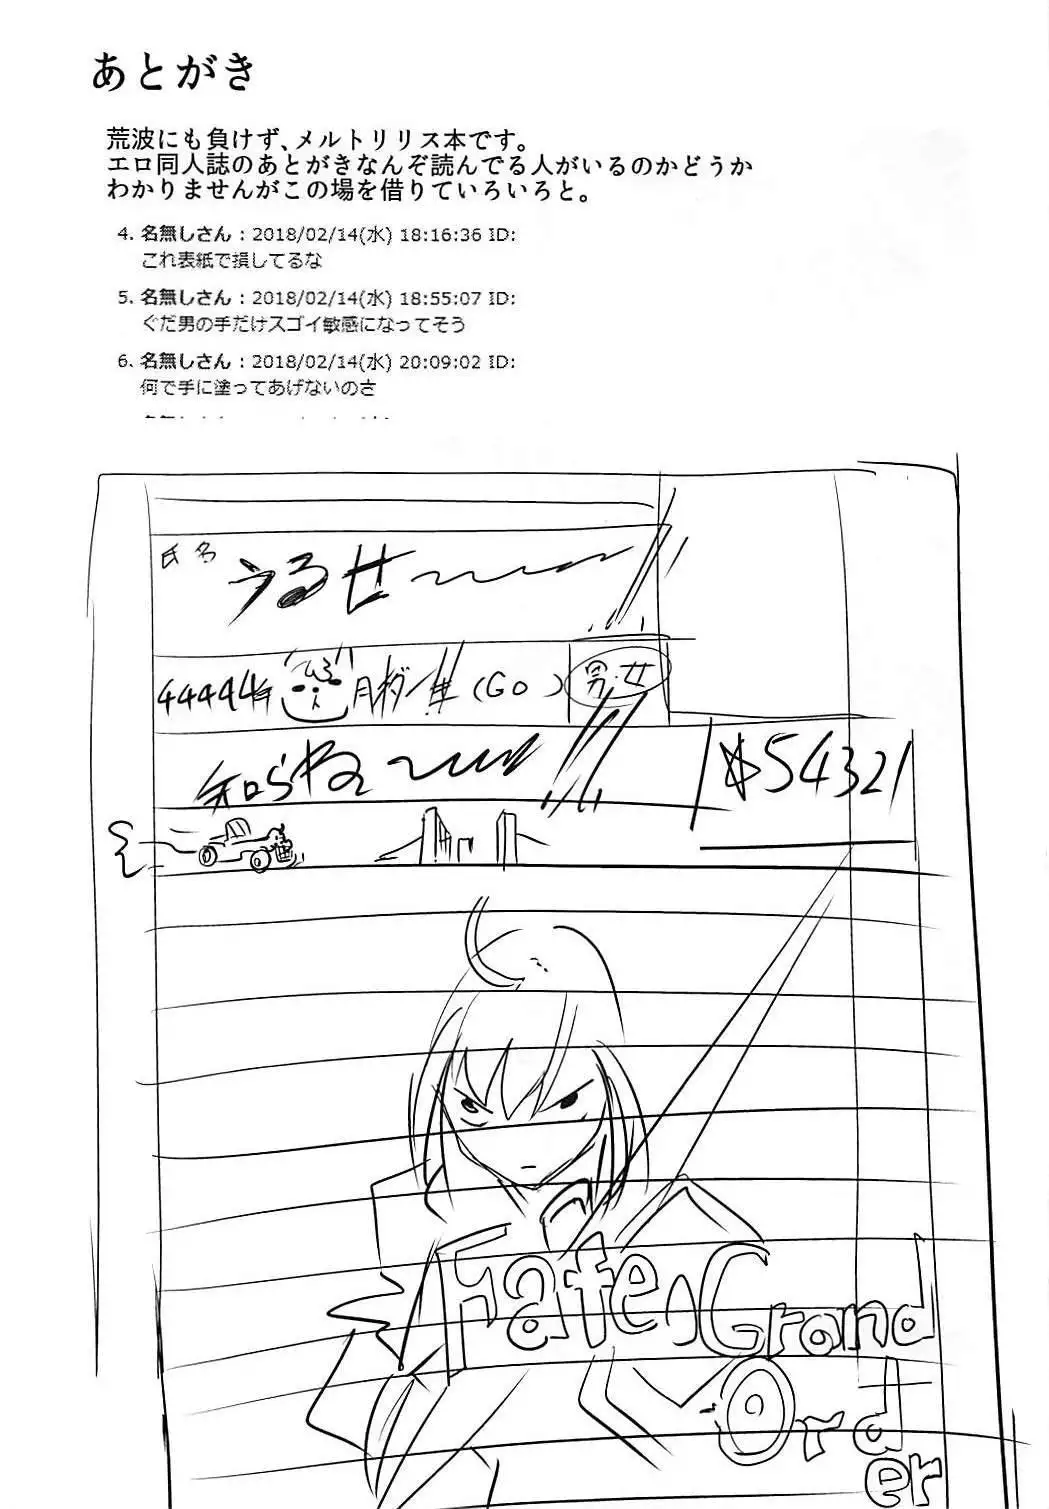 あとがき
荒波にも負けず、メルトリリス本です。
エロ同人誌のあとがきなんぞ読んでる人がいるのかどうか
わかりませんがこの場を借りていろいろと。
4. 名無しさん：2018/02/14(水) 18:16:36 ID:
これ表紙で損してるな
5. 名無しさん：2018/02/14(水) 18:55:07 ID:
ぐだ男の手だけスゴイ敏感になってそう
6. 名無しさん：2018/02/14(水) 20:09:02 ID:
何で手に塗ってあげないのさ
氏名
うるせ〜〜〜!!
44444年
月
(GO)
男・女
知らね〜〜〜!!
54321
Fate/Grand
Order